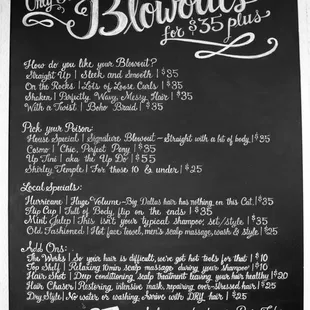 Only
Blowouts
for $35 plus
How do you like your Blowout?
Straight Up | Sleek and Smooth | $35
On the Rocks | Lots of Loose Curls | $35
Shaken | Perfectly Wavy, Messy Hair | $35
With a Twist | Boho Braid | $35
Pick your Poison:
House Special | Signature Blowout - Straight with a bit of body, | $35
Cosmo | Chic, Perfect Pony | $35
Up Tini | aka the Up Do | $55
Shirley Temple | For those 10 & under | $25
Local Specials:
Hurricane | Huge Volume - Big Dallas hair has nothing on this Cat. | $35
Flip Cup | Full of Body, flip on the ends | $35
Mint Julep | This isn't your typical shampoo, set/style | $35
Old Fashioned | Hot face towel, men's scalp massage, wash & style | $25
Add Ons:
The Works | So year hair is difficult, we've got hot tools for that | $10
Top Shelf | Relaxing 10min scalp massage during your shampoo | $10
Hair Shot | Deep conditioning, scalp treatment leaving your hair healthy | $20
Hair Chaser | Restoring, intensive mask, repairing over-stressed hair | $25
Dry Style | No water or washing, Arrive with DRY hair | $25